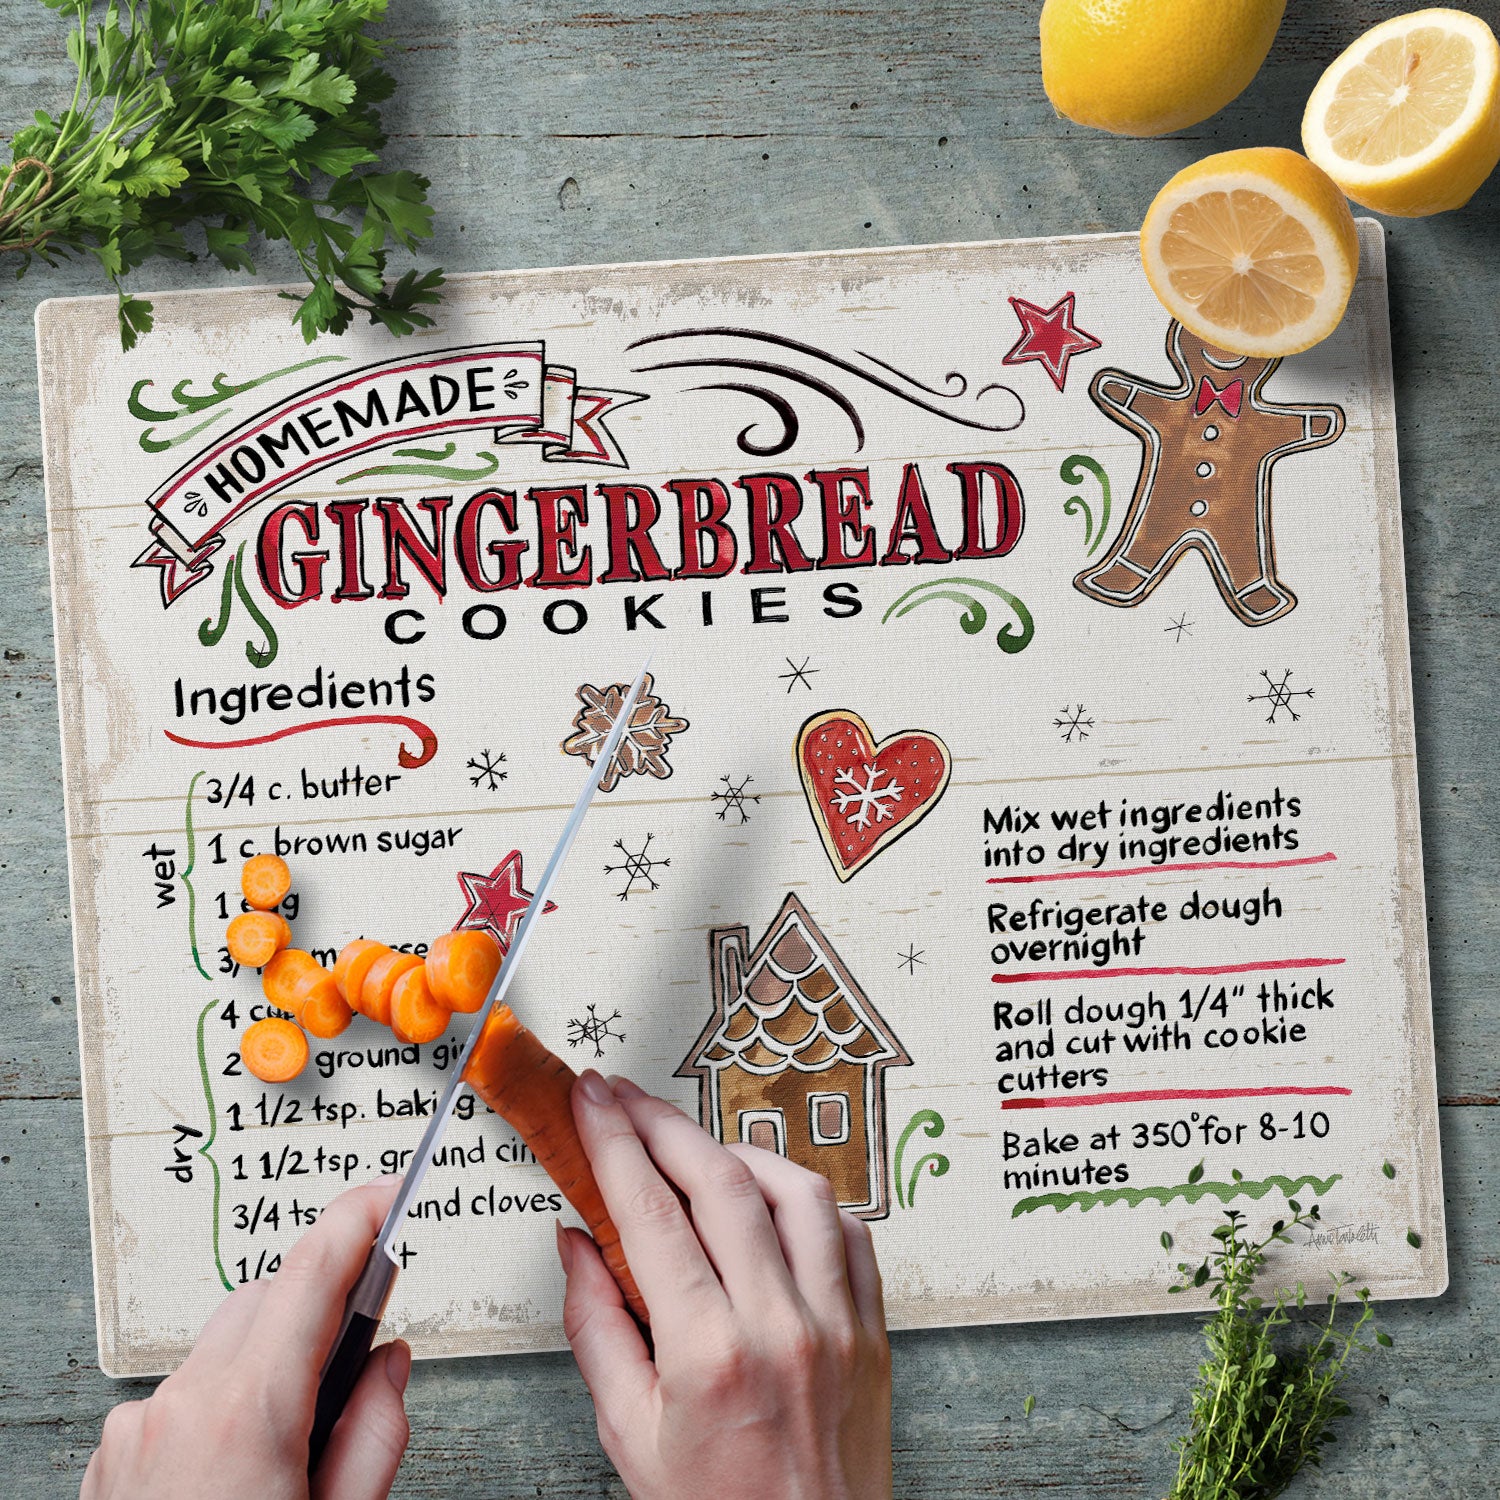 HOMEMADE
GINGERBREAD
COOKIES
Ingredients
wet
3/4 c. butter
1 c. brown sugar
1 egg
dry
4
2 ground
1 1/2 tsp. baking
1 1/2 tsp. ground
3/4 cloves
1/4
Mix wet ingredients
into dry ingredients
Refrigerate dough
overnight
Roll dough 1/4" thick
and cut with cookie
cutters
Bake at 350° for 8-10
minutes